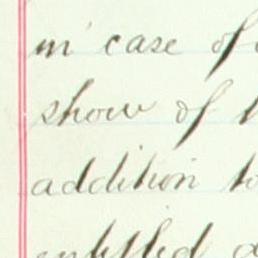 in case of
show of
addition to
entitled